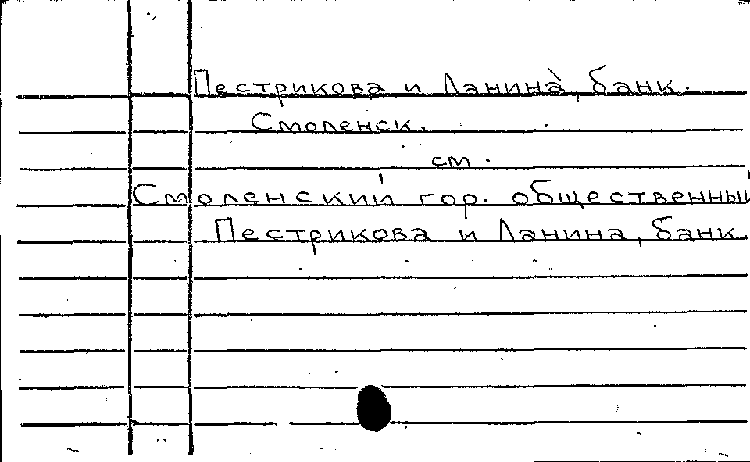 Пестрикова и Ланина, банк.
Смоленск.
см.
Смоленский гор. общественный
Пестрикова и Ланина, банк.